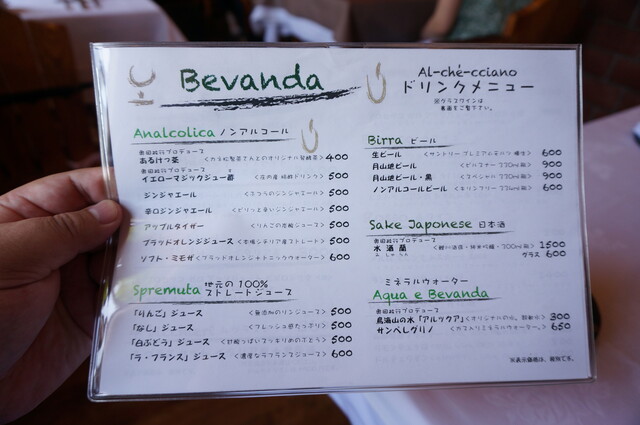 Bevanda
Al-ché-cciano
ドリンクメニュー
※グラスワインは
裏面をご覧下さい。
Analcolica ノンアルコール
奥田政行プロデュース
あるけっ茶 400
奥田政行プロデュース
イエローマジックジュー 500
ジンジャエール 500
辛口ジンジャエール <ピリッと辛いジンジャエール> 500
アップルタイザー 500
ブラッドオレンジジュース 500
ソフト・ミモザ <ブラッドオレンジ+トニックウォーター> 600
Spremuta 地元の 100%
ストレートジュース
「りんご」ジュース <無添加のリンジュース> 500
「なし」ジュース <フレッシュ感たっぷり> 500
「白ぶどう」ジュース 500
「ラ・フランス」ジュース <濃厚なラフランスジュース> 600
Birra ビール
生ビール 600
月山地ビール <ピルスナー 330ml瓶> 900
月山地ビール・黒 900
ノンアルコールビール <キリンフリー 334ml瓶> 600
Sake Japonese 日本酒
奥田政行プロデュース
水酒蘭 1500
グラス 600
ミネラルウォーター
Aqua e Bevanda
奥田政行プロデュース
鳥海山の水「アルックア」 300
サンペレグリノ 650
※表示価格は、税別です。